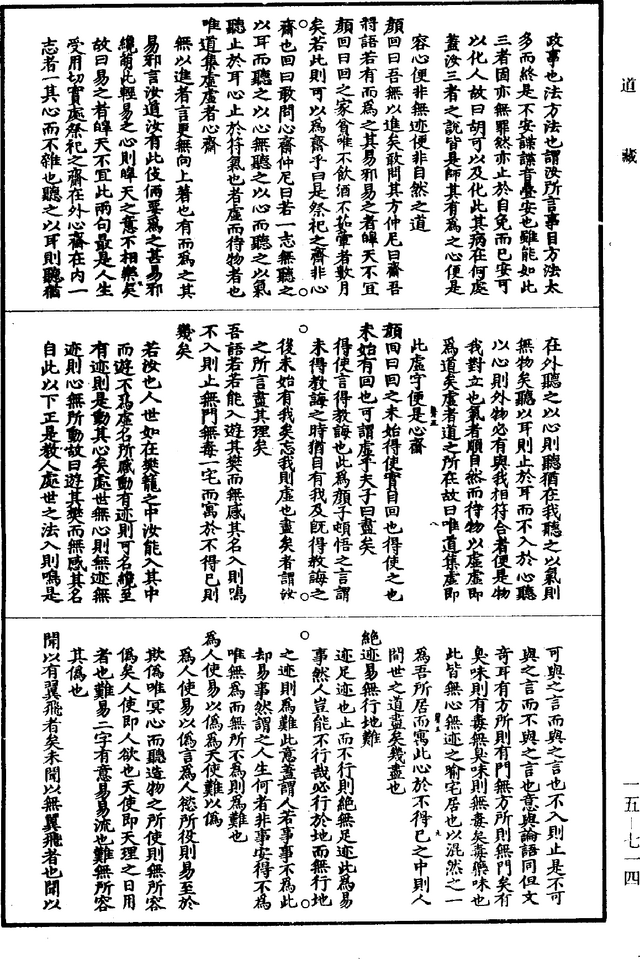 道藏
政事也法方法也謂汝所言事目方法太
多而終是不安諜諜音疊安也雖能如此
三者固亦無罪然亦止於自免而已安可
以化人故曰胡可以及化此其病在何處
蓋汝三者之說皆是師其有為之心便是
容心便非無迹便非自然之道
顏回曰吾無以進矣敢問其方仲尼曰齋吾
將語若有而為之其易邪易之者皞天不宜
顏回曰回之家貧唯不飲酒不茹葷者數月
矣若此則可以為齋乎曰是祭祀之齋非心
齋也回曰敢問心齋仲尼曰若一志無聽之
以耳而聽之以心無聽之以心而聽之以氣
聽止於耳心止於符氣也者虛而待物者也
唯道集虛虛者心齋
無以進者言更無向上著也有而為之其
易邪言汝道汝有此伎倆要為之甚易邪
纔萌此輕易之心則皞天之意不相樂矣
故曰易之者皞天不宜此兩句最是人生
受用切實處祭祀之齋在外心齋在內一
志者一其心而不雜也聽之以耳則聽猶
在外聽之以心則聽猶在我聽之以氣則
無物矣聽以耳則止於耳而不入於心聽
以心則外物必有與我相符合者便是物
我對立也氣者順自然而待物以虛虛即
為道矣虛者道之所在故曰唯道集虛即
此虛字便是心齋
顏回曰回之未始得使實自回也得使之也
未始有回也可謂虛乎夫子曰盡矣
得使言得教誨也此為顏子頓悟之言謂
未得教誨之時猶自有我及既得教誨之
後未始有我矣忘我則虛也盡矣者謂汝
之所言盡其理矣
吾語若若能入遊其樊而無感其名入則鳴
不入則止無門無毒一宅而寓於不得已則
幾矣
若汝也人世如在樊籠之中汝能入其中
而遊不為虛名所感動有迹則可名纔至
有迹則是動其心矣處世無心則無迹無
迹則心無所動故曰遊其樊而無感其名
自此以下正是教人處世之法入則鳴是
可與之言而與之言也不入則止是不可
與之言而不與之言也意與論語同但文
奇耳有方所則有門無方所則無門矣有
臭味則有毒無臭味則無毒矣毒藥味也
此皆無心無迹之喻宅居也以混然之一
為吾所居而寓此心於不得已之中則人
間世之道盡矣幾盡也
絕迹易無行地難
迹足迹也止而不行則絕無足迹此為易
事然人豈能不行哉必行於地而無行地
之迹則為難此意蓋謂人若事事不為此
却易事然謂之人生何者非事安得不為
唯無為而無所不為則為難也
為人使易以偽為天使難以偽
為人使易以偽言為人慾所役則易至於
欺偽唯冥心而聽造物之所使則無所容
偽矣人使即人欲也天使即天理之日用
者也難易二字有意易易流也難無所容
其偽也
聞以有翼飛者矣未聞以無翼飛者也聞以
一五—七一四